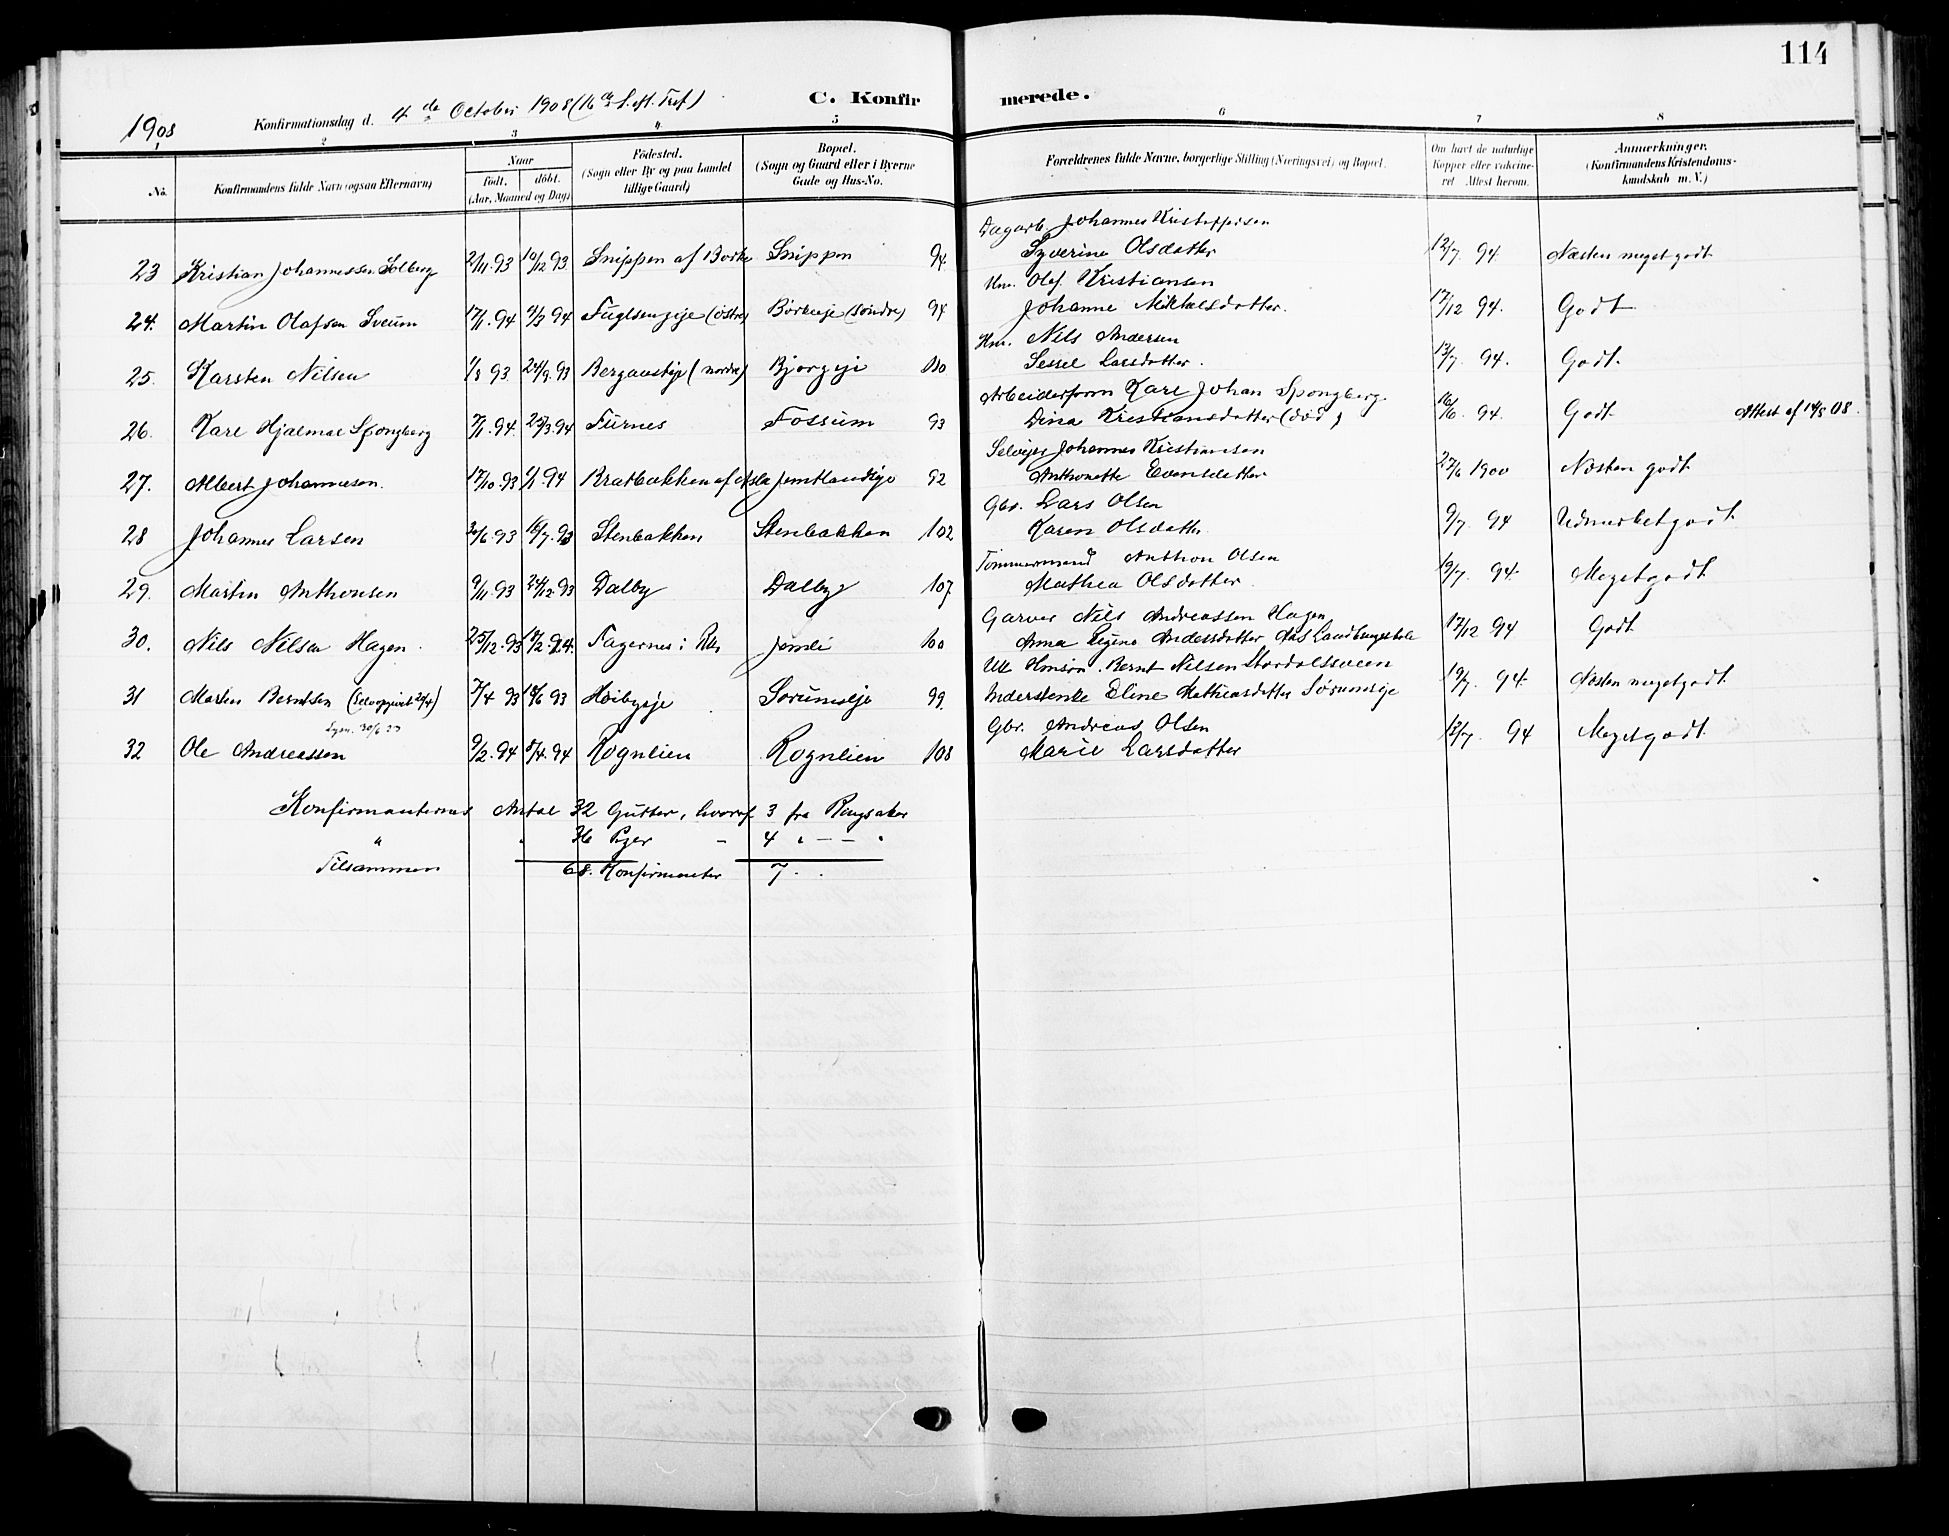 114
C. Konfirmerede.
1908
Konfirmationsdag d. 4de October 1908 (16de S. eft. Tref.)
2 3 4 5 6 7 8
No. Konfirmandens fulde Navn (ogsaa Efternavn)
Naar født. døbt. (Aar, Maaned og Dag)
Fødested. (Sogn eller By og paa Landet tillige Gaard)
Bopæl. (Sogn og Gaard eller i Byerne Gade og Hus-No.
Forældrenes fulde Navne, borgerlige Stilling (Næringsvei) og Bopæl.
Om havt de naturlige Kopper eller vakcineret Attest herom.
Anmærkninger. (Konfirmandens Kristendomskundskab m. V.)
Dagarb. Johannes Kristoffersen
23 Kristian Johannessen Solberg 2/11.93 10/12 93 Snippen af Borke Snippen 94 Syverine Olsdatter 12/7 94 Næsten meget godt
Hm. Olaf Kristiansen
24. Martin Olafsen Sveum 17/1.94 4/3 94 Fuglsengeje (østre) Børkeeje (søndre) 94 Johanne Mikkelsdatter. 17/12 94. Godt
Hm. Nils Andersen
25. Karsten Nilsen 1/8 93 24/9.93 (nordre) Bjørgeje 110 Sessel Larsdatter. 13/7 94. Godt.
Arbeiderform Karl Johan Spongberg.
26. Karl Hjalmar Spongberg 7/1.94. 25/3.94 Furnes Fossum 93 Dina Kristiansdatter (død) 16/6 94. Godt Attest af 14/5 08.
Selveier Johannes Kristiansen
27. Albert Johannesen. 17/10.93 1/1 94 Bratbakken af Jemtlandeje 92 Anthonette Evensdatter 27/6 1900 Næsten godt
Gbr. Lars Olsen
28 Johannes Larsen 30/6.93 16/7.93 Stenbakken Stenbakken 102 Karen Olsdatter 9/7 94 Udmærket godt
Tømmermand Anthon Olsen
29. Martin Anthonsen 9/11.93 24/12.93 Dalby Dalby 107 Mathea Olsdatter. 19/7. 94. Meget godt
Garver Nils Andreassen Hagen
30. Nils Nilsen Hagen. 25/12.93 18/2.94. Fagernes i Jemli 100 Anna Andersdatter 17/12 94 Godt
Bernt Nilsen
31 Martin Berntsen 7/4 93 18/6 93 Høibyeje Sørumseje 99. Eline Mathiasdatter Sørumseje 19/7. 94. Næsten meget godt.
Gbr. Andreas Olsen
32 Ole Andreassen 9/2.94 8/4.94 Rognlien Rognlien 108 Marie Larsdatter 13/7. 94 Meget godt.
Konfirmanternes Antal 32 Gutter, hvoraf 3 fra Ringsaker
" 36 Piger - 4 " - - "
Tilsammen 68. Konfirmanter 7.